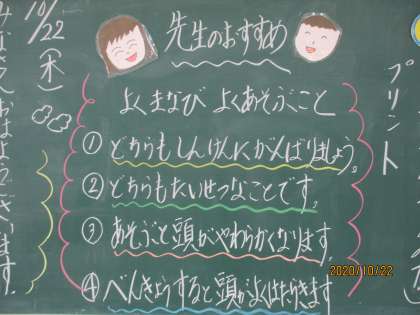 10/22
(木)
みなさんおはようございます。
先生のおすすめ
よくまなび よくあそぶこと
① どちらもしんけんにがんばりましょう。
② どちらもたいせつなことです。
③ あそぶと頭がやわらかくなります。
④ べんきょうすると頭がよくはたらきます
プリント
2020/10/22